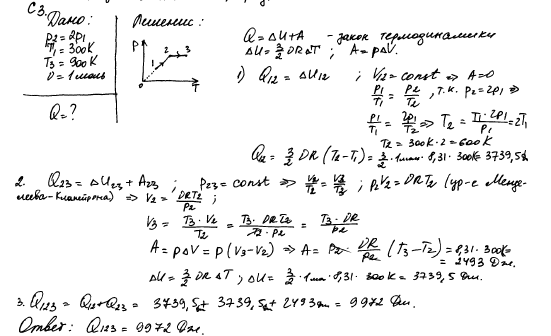 С3.
Дано:
p2 = 2p1
T1 = 300K
T3 = 900K
D = 1 моль
Q = ?
Решение:
P
1 2 3
0 T
Q = ΔU + A - закон термодинамики
ΔU = 3/2 DRΔT ; A = pΔV.
1) Q12 = ΔU12 ; V12 = const => A = 0
p1/T1 = p2/T2 , т.к. p2 = 2p1 =>
p1/T1 = 2p1/T2 => T2 = T1·2p1/p1 = 2T1
T2 = 300K·2 = 600K
Q12 = 3/2 DR (T2 - T1) = 3/2·1 моль·8,31·300K = 3739,5 Дж
2. Q23 = ΔU23 + A23 ; p23 = const => V2/T2 = V3/T3 ; p2V2 = DRT2 (ур-е Менде-
леева-Клапейрона) => V2 = DRT2/p2 ;
V3 = T3·V2/T2 = T3·DRT2/T2·p2 = T3·DR/p2
A = pΔV = p(V3 - V2) => A = p2·DR/p2 (T3 - T2) = 8,31·300K =
= 2493 Дж.
ΔU = 3/2 DRΔT ; ΔU = 3/2·1м·8,31·300K = 3739,5 Дж.
3. Q123 = Q12 + Q23 = 3739,5 Дж + 3739,5 Дж + 2493 Дж = 9972 Дж.
Ответ: Q123 = 9972 Дж.